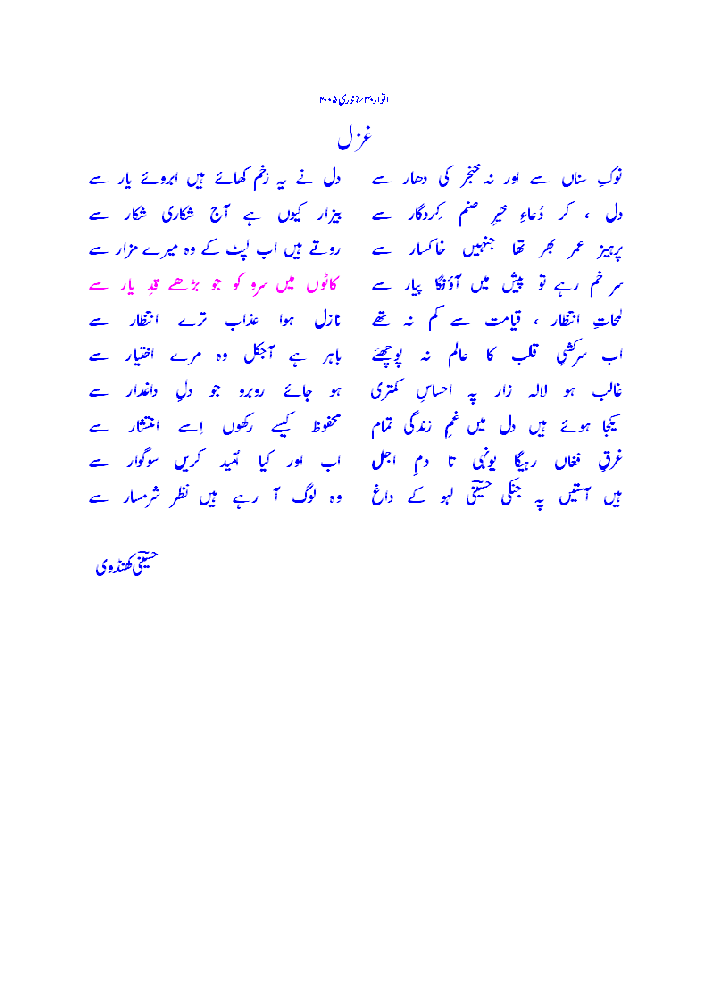 اتوار ۳۰؍ جنوری ۲۰۰۵
غزل
نوکِ سناں سے اور نہ خنجر کی دھار سے دل نے یہ زخم کھائے ہیں ابروئے یار سے
دل ، کر دُعاءِ خیرِ صنم کِردگار سے بیزار کیوں ہے آج شکاری شکار سے
پرہیز عمر بھر تھا جنہیں خاکسار سے روتے ہیں اب لپٹ کے وہ میرے مزار سے
سر خم رہے تو پیش میں آؤنگا پیار سے کاٹوں میں سرو کو جو بڑھے قدِ یار سے
لمحاتِ انتظار ، قیامت سے کم نہ تھے نازل ہوا عذاب ترے انتظار سے
اب سرکشیِ قلب کا عالم نہ پوچھئے باہر ہے آجکل وہ مرے اختیار سے
غالب ہو لالہ زار پہ احساسِ کمتری ہو جائے روبرو جو دلِ داغدار سے
یکجا ہوئے ہیں دل میں غمِ زندگی تمام محفوظ کیسے رکھوں اِسے انتشار سے
غرقِ فغاں رہیگا یونہی تا دمِ اجل اب اور کیا اُمید کریں سوگوار سے
ہیں آستیں پہ جنکی حسیؔنی لہو کے داغ وہ لوگ آ رہے ہیں نظر شرمسار سے
حسیؔنی کھنڈوی